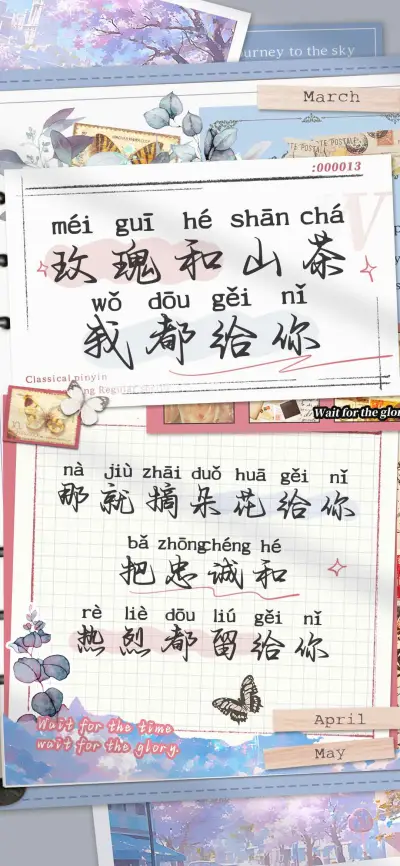 ourney to the sky
March
:000013
méi guī hé shān chá
玫瑰和山茶
wǒ dōu gěi nǐ
我都给你
Classical pinyin
Wait for the glor
nà jiù zhāi duǒ huā gěi nǐ
那就摘朵花给你
bǎ zhōngchéng hé
把忠诚和
rè liè dōu liú gěi nǐ
热烈都留给你
April
Wait for the time
wait for the glory.
May